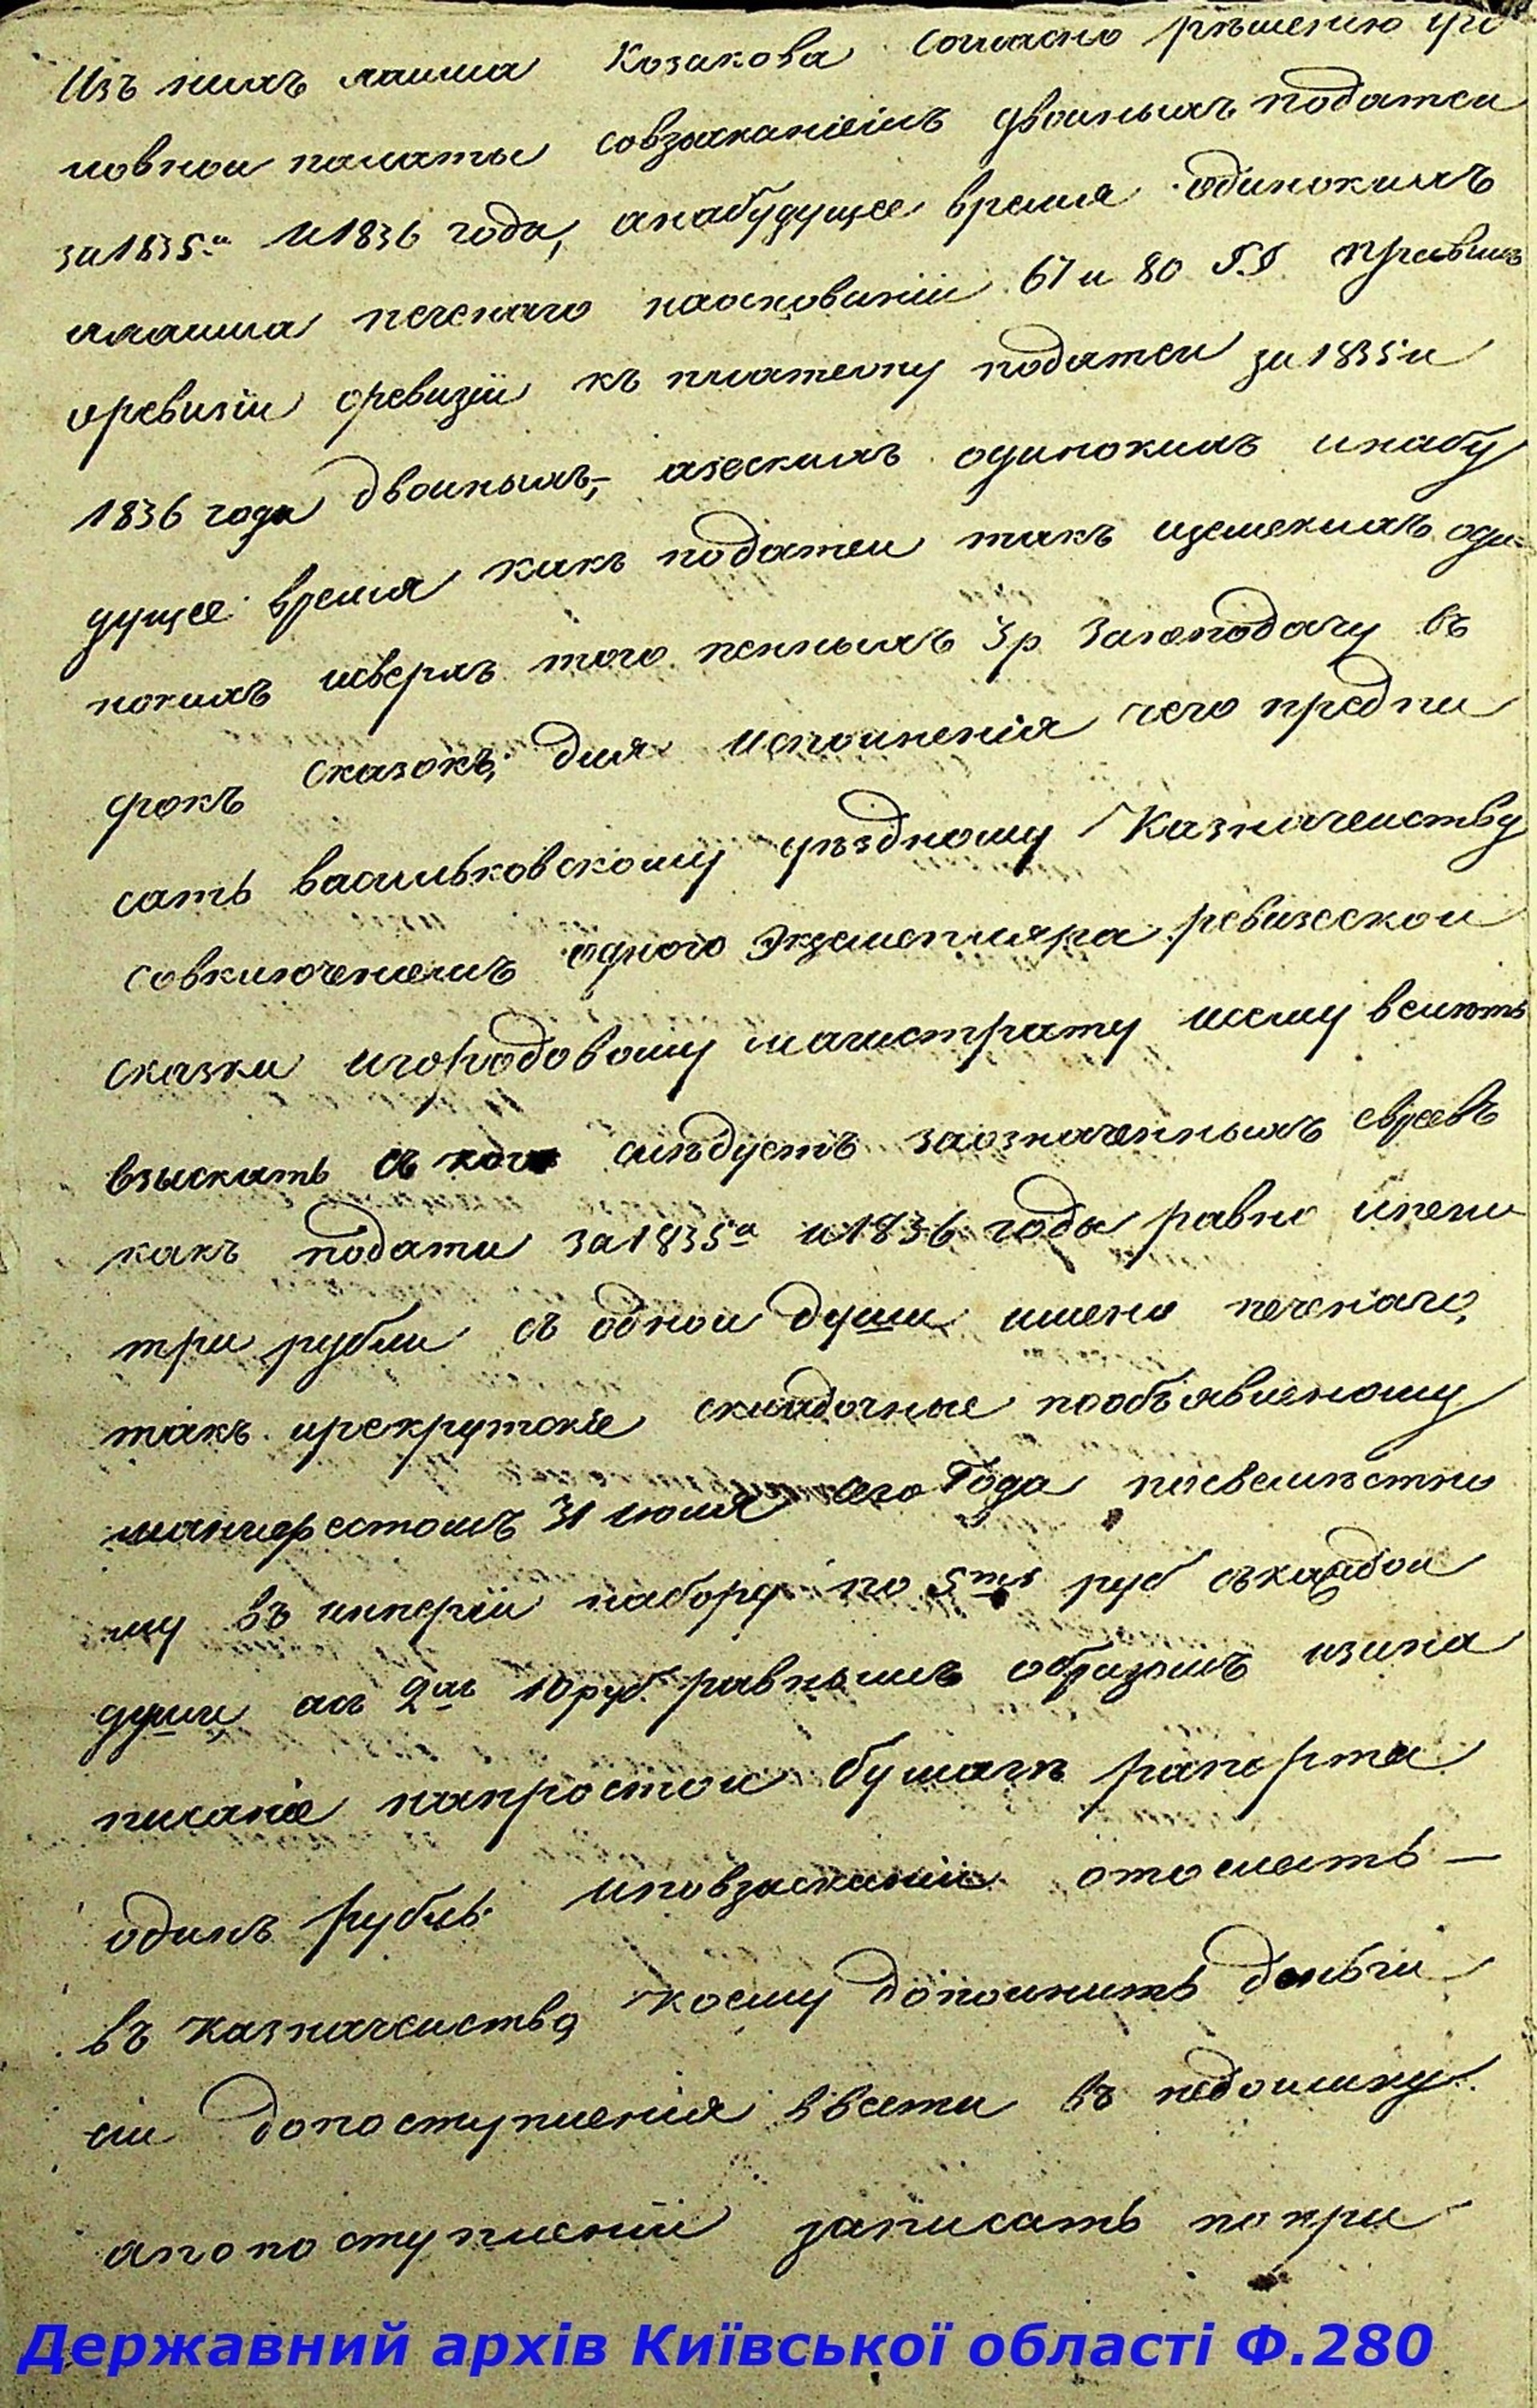 Изъ нихъ лаима Козакова Согласно рѣшению уго
ловной палаты совзысканіемъ двойныхъ податей
за 1835й и 1836 года, анабудущее время одинокихъ
иланма печенаго наоснованіи 67 и 80 §§ правилъ
оревизіи оревизіи къ платежу податей за 1835 и
1836 года двойныхъ, аземскихъ одинокихъ инабу
дущее время какъ податей такъ иземскихъ оди=
нокихъ исверхъ того пенныхъ 3 р занеподачу въ
срокъ сказокъ, для исполненія чего предпи
сать васильковскому уѣздному Казначейству
совключениемъ одного экземпляра ревизской
сказки игородовому магистрату коему велить
взыскать съ кого слѣдуетъ заозначенныхъ евреевъ
какъ подати за 1835й и 1836 годы равно ипени
три рубли съ одной души имено печенаго,
такъ ирекрутскіе складочные пообъявленому
манифестомъ 31 июля сего Года посвемѣстно
му въ имперіи набору по 5ть руб скаждой
души, асъ 2хъ 10 руб. равнымъ образомъ изана
писаніе напростой бумагѣ рапорта
одинъ рубль иповзысканіи отослать —
въ казначейство, коему дополнить деньги
сіи допоступленія ввести въ недоимку
апопоступленіи записать попри
Державний архів Київської області Ф.280